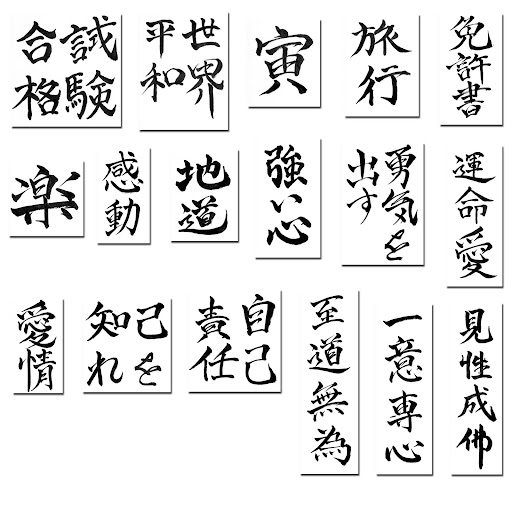 試験
合格
世界
平和
寅
旅行
免許書
楽
感動
地道
強い心
勇気を
出す
運命愛
愛情
己を
知れ
自己
責任
至道無為
一意専心
見性成佛